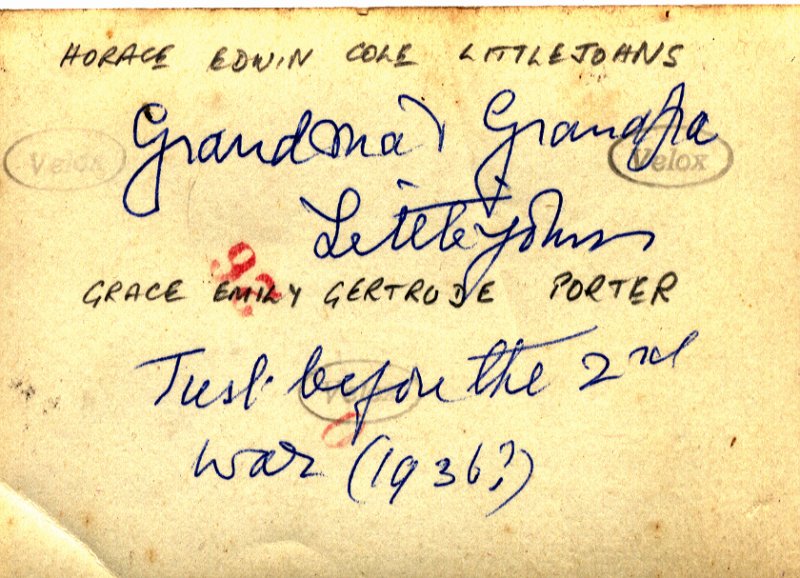 HORACE EDWIN COLE LITTLEJOHNS
Grandma & Grandpa
Velox Velox
Littlejohns
GRACE EMILY GERTRUDE PORTER
Just before the 2nd
Velox
war (1936?)